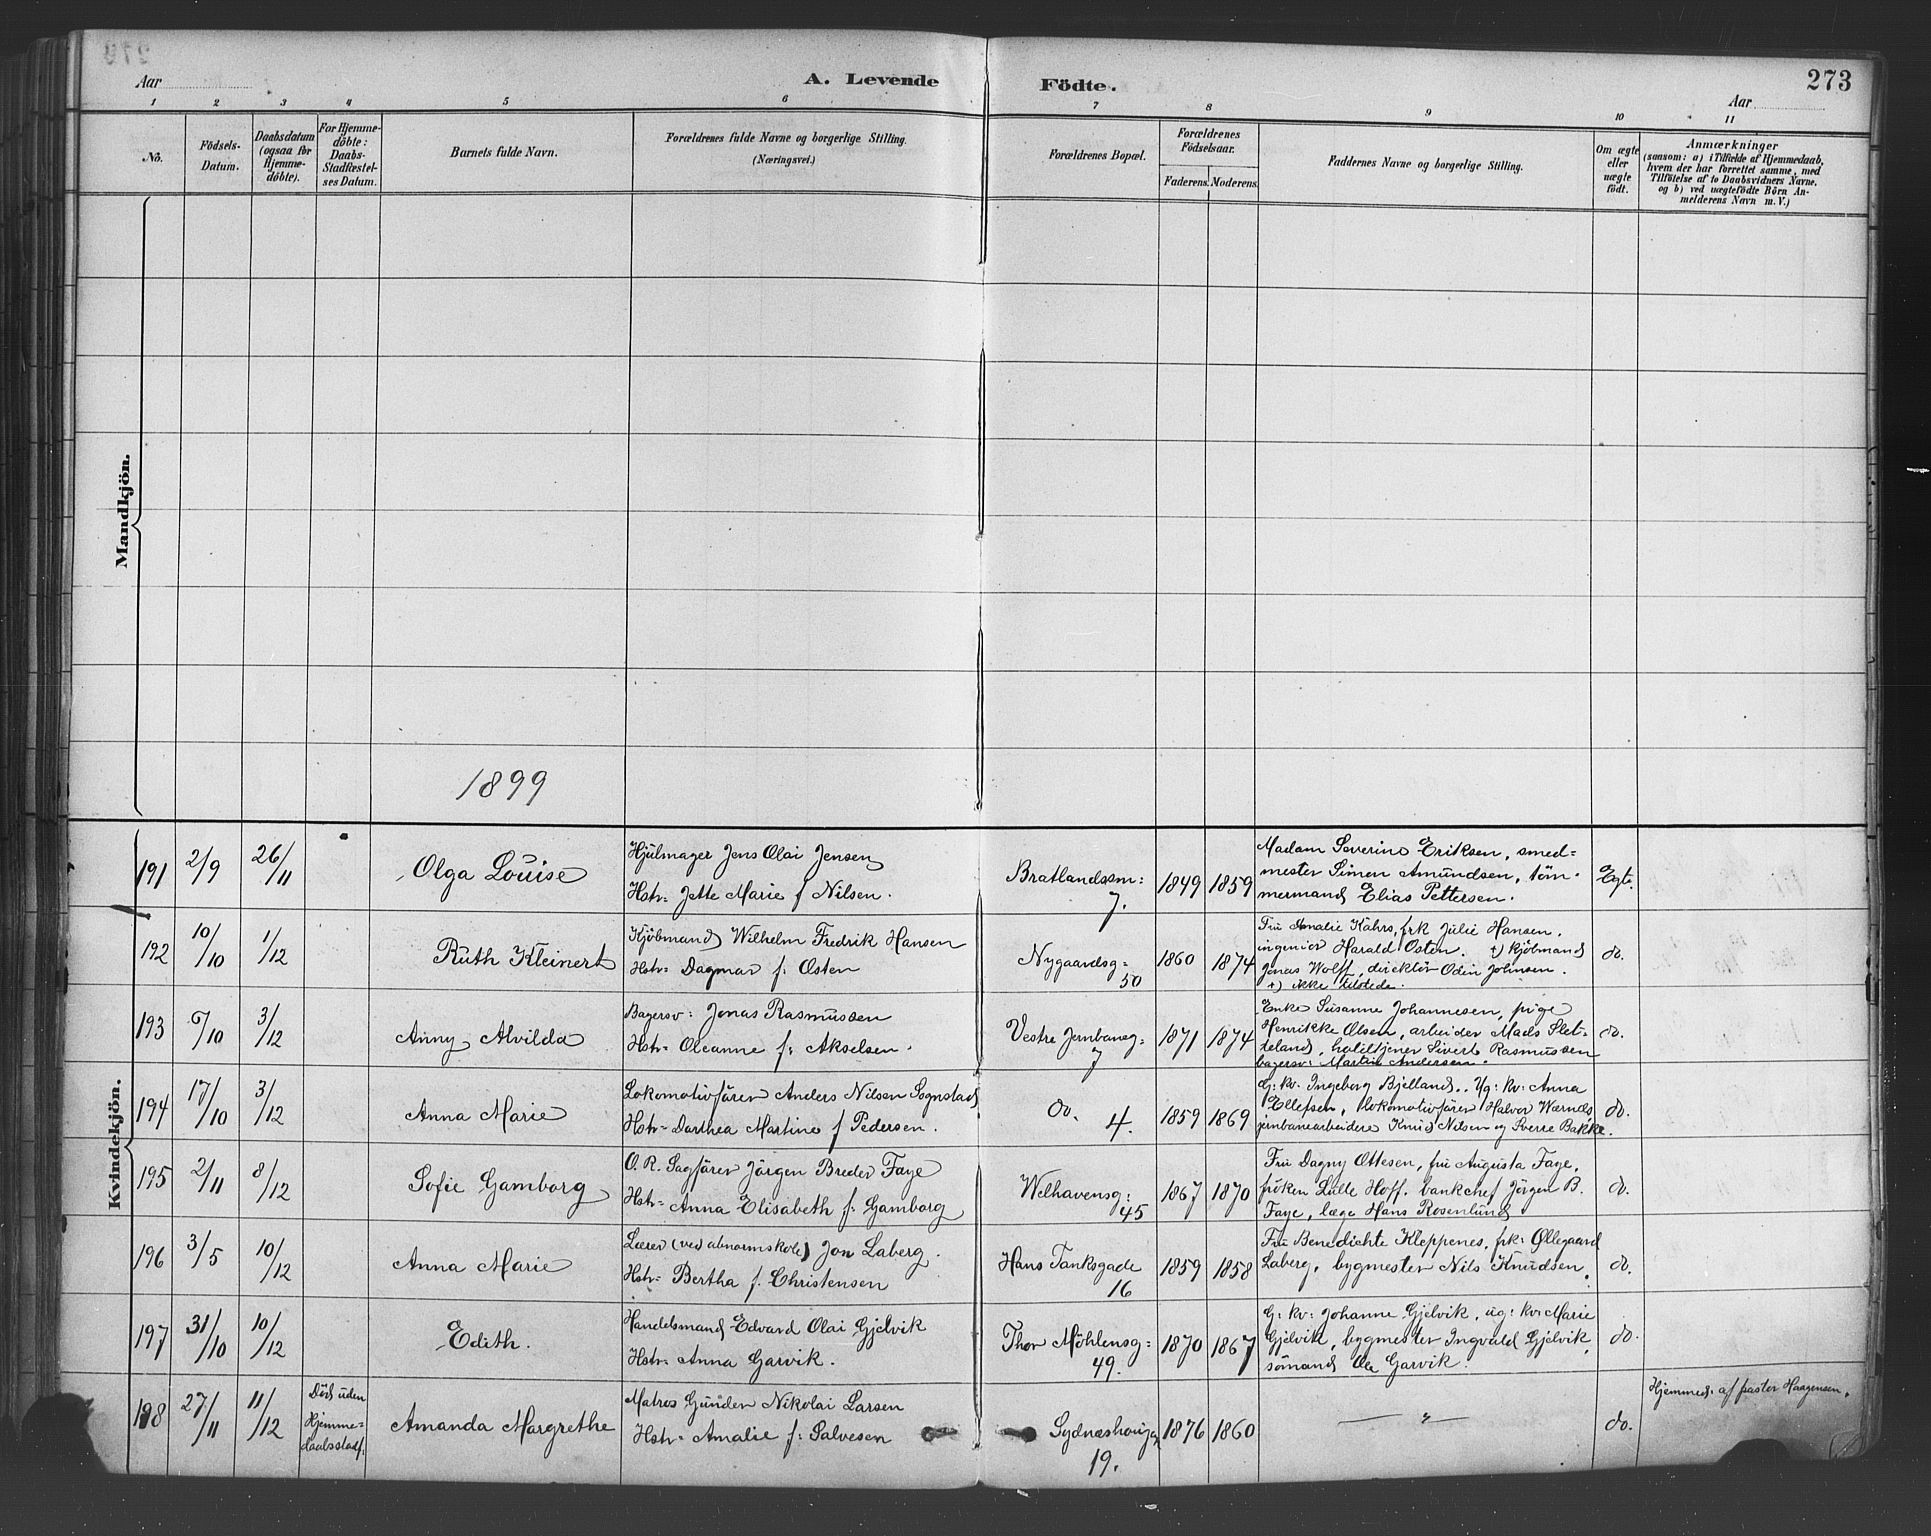 273
Aar
A. Levende Födte.
Aar
1 2 3 4 5 6 7 8 9 10 11
No.
Födsels-
Datum.
Daabsdatum
(ogsaa for
Hjemme-
döbte).
For Hjemme-
döbte:
Daabs-
Stadfæstel-
ses Datum.
Barnets fulde Navn.
Forældrenes fulde Navne og borgerlige Stilling.
(Næringsvei.)
Forældrenes Bopæl.
Forældrenes
Födselsaar.
Faderens. Moderens.
Faddernes Navne og borgerlige Stilling.
Om ægte
eller
uægte
födt.
Anmærkninger
(saasom: a) i Tilfælde af Hjemmedaab,
hvem der har forrettet samme, med
Tilföielse af to Daabsvidners Navne,
og b) ved uægtefödte Börn An-
melderens Navn m. V.)
Mandkjön.
1899
Kvindekjön.
191 2/9 26/11
Olga Louise
Hjulmager Jens Olai Jensen
Hstr= Jette Marie f Nilsen.
Bratlandssm:
7.
1849 1859
Madam Severine Eriksen, smed=
mester Simen Amundsen, töm-
mermand Elias Pettersen.
Egte.
192 10/10 1/12
Ruth Kleinert
Kjöbmand Wilhelm Fredrik Hansen
Hstr= Dagmar f: Osten
Nygaardsg=
50
1860 1874
Fru Amalie Kahrs, frk Julie Hansen.
ingeniör Harald Osten. +) kjöbmand
Jonas Wolff, direktör Odin Johnsen.
+) ikke tilstede.
do.
193 6/10 3/12
Anny Alvilda
Bagersv: Jonas Rasmussen
Hstr= Oleanne f: Akselsen.
Vestre Jernbaneg=
7
1871 1874
Enke Susanne Johannesen, pige
Henrikke Olsen, arbeider Mads Slet-
teland, Sivert Rasmussen
bagersv: Martin Andersen.
do.
194 17/10 3/12
Anna Marie
Lokomotivförer Anders Nilsen Sognstad
Hstr= Dorthea Martine f Pedersen.
do. 4.
1859 1869
G: kv. Ingeborg Bjelland.. Ug: kv: Anna
Ellefsen, lokomotivförer Halvor
jernbanearbeidere Knud Nilsen og Sverre Bakke.
do.
195 2/11 8/12
Sofie Gamborg
O. R. Sagförer Jörgen Breder Faye
Hstr= Anna Elisabeth f: Gamborg
Welhavensg:
45
1867 1870
Fru Dagny Ottesen, fru Augusta Faye,
fröken Lulle Hoff, bankchef Jörgen B.
Faye, læge Hans Rosenlund
do.
196 3/5 10/12
Anna Marie
Lærer (ved abnormskole) Jon Laberg.
Hstr= Bertha f. Christensen
Hans Tanksgade
16
1859 1858
Fru Benedichte Kleppenes, frk: Øllegaard
Laberg, bygmester Nils Knudsen.
do.
197 31/10 10/12
Edith.
Handelsmand Edvard Olai Gjelvik
Hstr= Anna Garvik.
Thor Möhlensg=
49.
1870 1867
G: kv: Johanne Gjelvik, ug: kv: Marie
Gjelvik, bygmester Ingvald Gjelvik,
sömand Ole Garvik.
do.
198 27/11 11/12
Död uden
Hjemme=
daabsstadf:
Amanda Margrethe
Matros Gunder Nikolai Larsen
Hstr= Amalie f: Salvesen
19.
1876 1860
— " —
do.
Hjemmed: af pastor Haagensen.